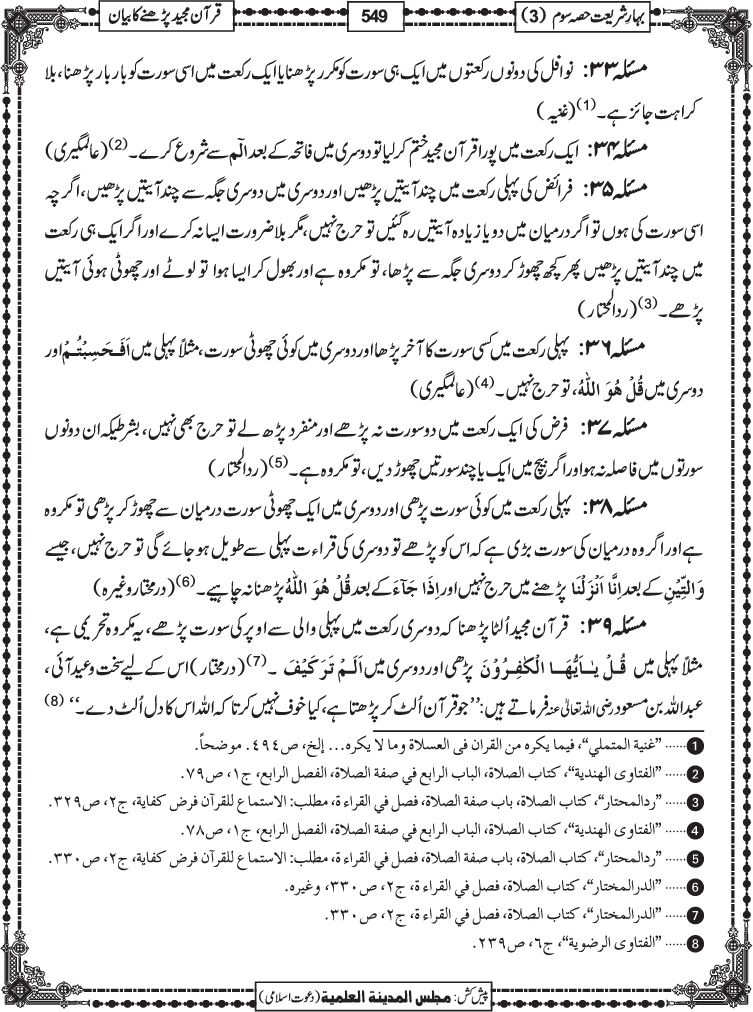 بہارِ شریعت حصہ سوم (3)
549
قرآن مجید پڑھنے کا بیان
مسئلہ ۳۳: نوافل کی دونوں رکعتوں میں ایک ہی سورت کو مکرر پڑھنا یا ایک رکعت میں اسی سورت کو بار بار پڑھنا، بلا
کراہت جائز ہے۔ (1) (غنیہ)
مسئلہ ۳۴: ایک رکعت میں پورا قرآن مجید ختم کرلیا تو دوسری میں فاتحہ کے بعد الٓم سے شروع کرے۔ (2) (عالمگیری)
مسئلہ ۳۵: فرائض کی پہلی رکعت میں چند آیتیں پڑھیں اور دوسری میں دوسری جگہ سے چند آیتیں پڑھیں، اگرچہ
اسی سورت کی ہوں تو اگر درمیان میں دو یا زیادہ آیتیں رہ گئیں تو حرج نہیں، مگر بلا ضرورت ایسا نہ کرے اور اگر ایک ہی رکعت
میں چند آیتیں پڑھیں پھر کچھ چھوڑ کر دوسری جگہ سے پڑھا، تو مکروہ ہے اور بھول کر ایسا ہوا تو لوٹے اور چھوٹی ہوئی آیتیں
پڑھے۔ (3) (ردالمحتار)
مسئلہ ۳۶: پہلی رکعت میں کسی سورت کا آخر پڑھا اور دوسری میں کوئی چھوٹی سورت، مثلاً پہلی میں اَفَحَسِبْتُمْ اور
دوسری میں قُلْ هُوَ اللّٰهُ، تو حرج نہیں۔ (4) (عالمگیری)
مسئلہ ۳۷: فرض کی ایک رکعت میں دو سورت نہ پڑھے اور منفرد پڑھ لے تو حرج بھی نہیں، بشرطیکہ ان دونوں
سورتوں میں فاصلہ نہ ہو اور اگر بیچ میں ایک یا چند سورتیں چھوڑ دیں، تو مکروہ ہے۔ (5) (ردالمحتار)
مسئلہ ۳۸: پہلی رکعت میں کوئی سورت پڑھی اور دوسری میں ایک چھوٹی سورت درمیان سے چھوڑ کر پڑھی تو مکروہ
ہے اور اگر وہ درمیان کی سورت بڑی ہے کہ اس کو پڑھے تو دوسری کی قراءت پہلی سے طویل ہو جائے گی تو حرج نہیں، جیسے
وَالتِّيْنِ کے بعد اِنَّا اَنْزَلْنَا پڑھنے میں حرج نہیں اور اِذَا جَآءَ کے بعد قُلْ هُوَ اللّٰهُ پڑھنا نہ چاہیے۔ (6) (درمختار وغیرہ)
مسئلہ ۳۹: قرآن مجید اُلٹا پڑھنا کہ دوسری رکعت میں پہلی والی سے اوپر کی سورت پڑھے، یہ مکروہ تحریمی ہے،
مثلاً پہلی میں قُلْ يٰۤاَيُّهَا الْكٰفِرُوْنَ پڑھی اور دوسری میں اَلَمْ تَرَ كَيْفَ ۔ (7) (درمختار) اس کے لیے سخت وعید آئی،
عبداللہ بن مسعود رضی اللہ تعالیٰ عنہ فرماتے ہیں: ’’جو قرآن اُلٹ کر پڑھتا ہے، کیا خوف نہیں کرتا کہ اللہ اس کا دل اُلٹ دے۔‘‘ (8)
1 ...... ”غنية المتملي“، فيما يكره من القران فى العسلاة وما لا يكره... إلخ، ص٤٩٤. موضحاً.
2 ...... ”الفتاوى الهندية“، كتاب الصلاة، الباب الرابع في صفة الصلاة، الفصل الرابع، ج١، ص٧٩.
3 ...... ”ردالمحتار“، كتاب الصلاة، باب صفة الصلاة، فصل في القراءة، مطلب: الاستماع للقرآن فرض كفاية، ج٢، ص٣٢٩.
4 ...... ”الفتاوى الهندية“، كتاب الصلاة، الباب الرابع في صفة الصلاة، الفصل الرابع، ج١، ص٧٨.
5 ...... ”ردالمحتار“، كتاب الصلاة، باب صفة الصلاة، فصل في القراءة، مطلب: الاستماع للقرآن فرض كفاية، ج٢، ص٣٣٠.
6 ...... ”الدرالمختار“، كتاب الصلاة، فصل في القراءة، ج٢، ص٣٣٠، وغيره.
7 ...... ”الدرالمختار“، كتاب الصلاة، فصل في القراءة، ج٢، ص٣٣٠.
8 ...... ”الفتاوى الرضوية“، ج٦، ص٢٣٩.
پیش کش: مجلس المدینة العلمیة (دعوتِ اسلامی)